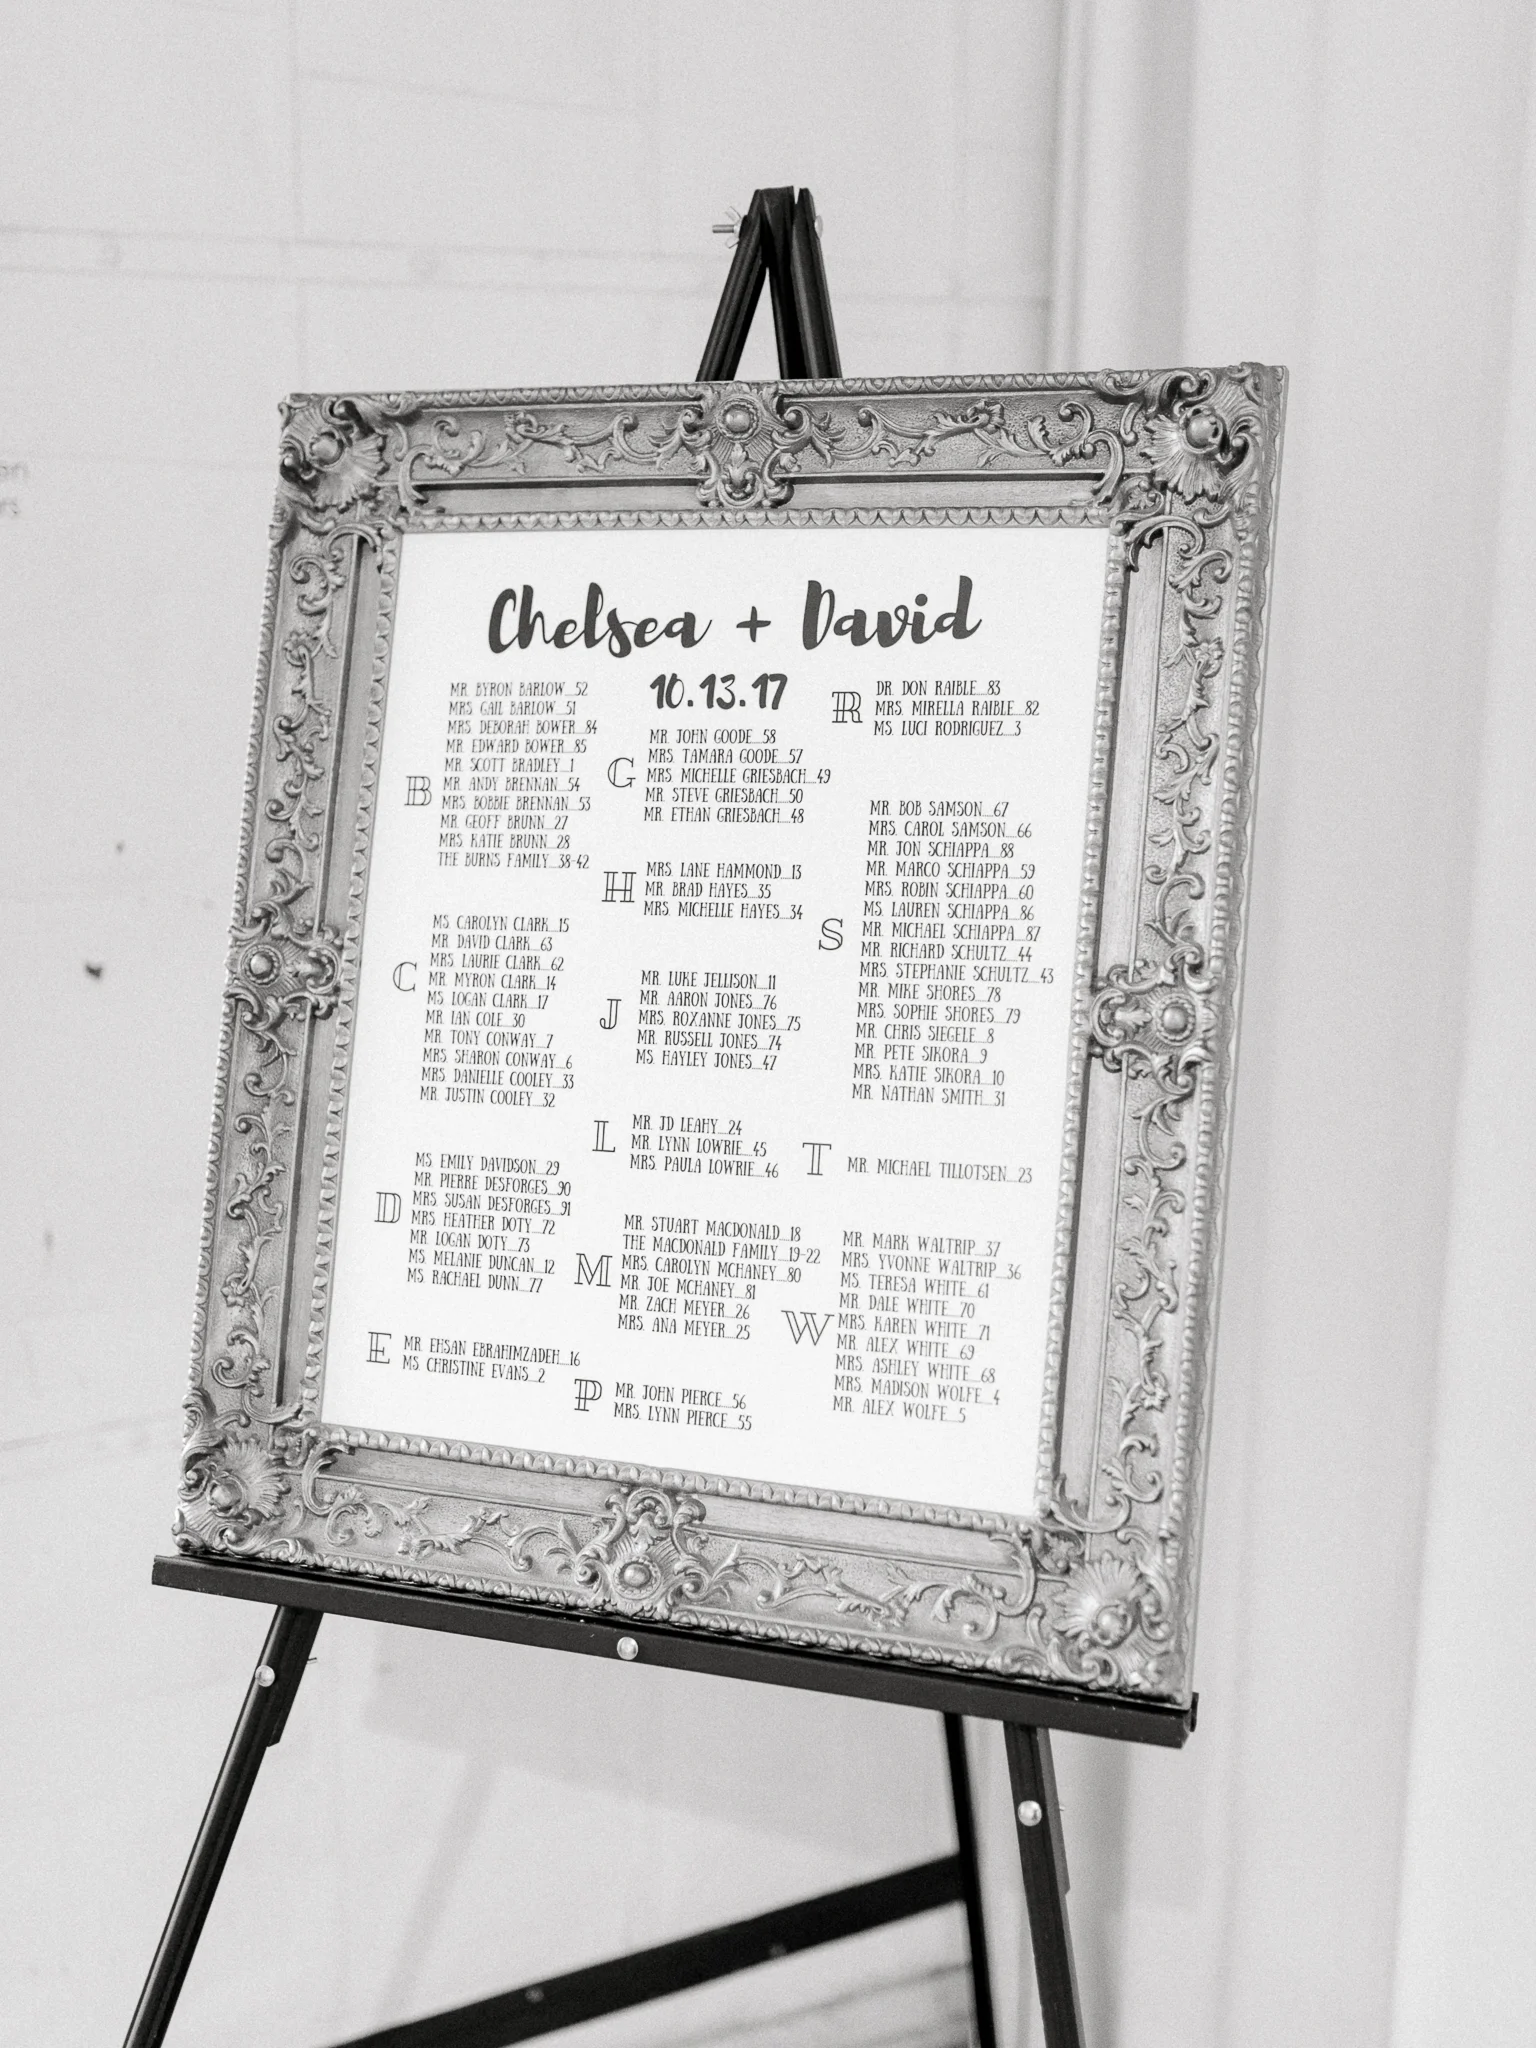 Chelsea + David
10.13.17
B
MR. BYRON BARLOW...52
MRS GAIL BARLOW...51
MRS. DEBORAH BOWER...84
MR. EDWARD BOWER...85
MR. SCOTT BRADLEY...1
MR. ANDY BRENNAN...54
MRS. BOBBIE BRENNAN...53
MR. GEOFF BRUNN...27
MRS KATIE BRUNN...28
THE BURNS FAMILY...38-42
C
MS CAROLYN CLARK...15
MR. DAVID CLARK...63
MRS. LAURIE CLARK...62
MR. MYRON CLARK...14
MS. LOGAN CLARK...17
MR. IAN COLE...30
MR. TONY CONWAY...7
MRS SHARON CONWAY...6
MRS. DANIELLE COOLEY...33
MR. JUSTIN COOLEY...32
D
MS. EMILY DAVIDSON...29
MR. PIERRE DESFORGES...90
MRS SUSAN DESFORGES...91
MRS HEATHER DOTY...72
MR. LOGAN DOTY...73
MS. MELANIE DUNCAN...12
MS. RACHAEL DUNN...77
E
MR. EHSAN EBRAHIMZADEH...16
MS CHRISTINE EVANS...2
G
MR. JOHN GOODE...58
MRS. TAMARA GOODE...57
MRS. MICHELLE GRIESBACH...49
MR. STEVE GRIESBACH...50
MR. ETHAN GRIESBACH...48
H
MRS. LANE HAMMOND...13
MR. BRAD HAYES...35
MRS. MICHELLE HAYES...34
J
MR. LUKE JELLISON...11
MR. AARON JONES...76
MRS. ROXANNE JONES...75
MR. RUSSELL JONES...74
MS. HAYLEY JONES...47
L
MR. JD LEAHY...24
MR. LYNN LOWRIE...45
MRS. PAULA LOWRIE...46
M
MR. STUART MACDONALD...18
THE MACDONALD FAMILY...19-22
MRS. CAROLYN MCHANEY...80
MR. JOE MCHANEY...81
MR. ZACH MEYER...26
MRS. ANA MEYER...25
P
MR. JOHN PIERCE...56
MRS. LYNN PIERCE...55
R
DR. DON RAIBLE...83
MRS. MIRELLA RAIBLE...82
MS. LUCI RODRIGUEZ...3
S
MR. BOB SAMSON...67
MRS. CAROL SAMSON...66
MR. JON SCHIAPPA...88
MR. MARCO SCHIAPPA...59
MRS. ROBIN SCHIAPPA...60
MS. LAUREN SCHIAPPA...86
MR. MICHAEL SCHIAPPA...87
MR. RICHARD SCHULTZ...44
MRS. STEPHANIE SCHULTZ...43
MR. MIKE SHORES...78
MRS. SOPHIE SHORES...79
MR. CHRIS SIEGELE...8
MR. PETE SIKORA...9
MRS. KATIE SIKORA...10
MR. NATHAN SMITH...31
T
MR. MICHAEL TILLOTSEN...23
W
MR. MARK WALTRIP...37
MRS. YVONNE WALTRIP...36
MS. TERESA WHITE...61
MR. DALE WHITE...70
MRS. KAREN WHITE...71
MR. ALEX WHITE...69
MRS. ASHLEY WHITE...68
MRS. MADISON WOLFE...4
MR. ALEX WOLFE...5